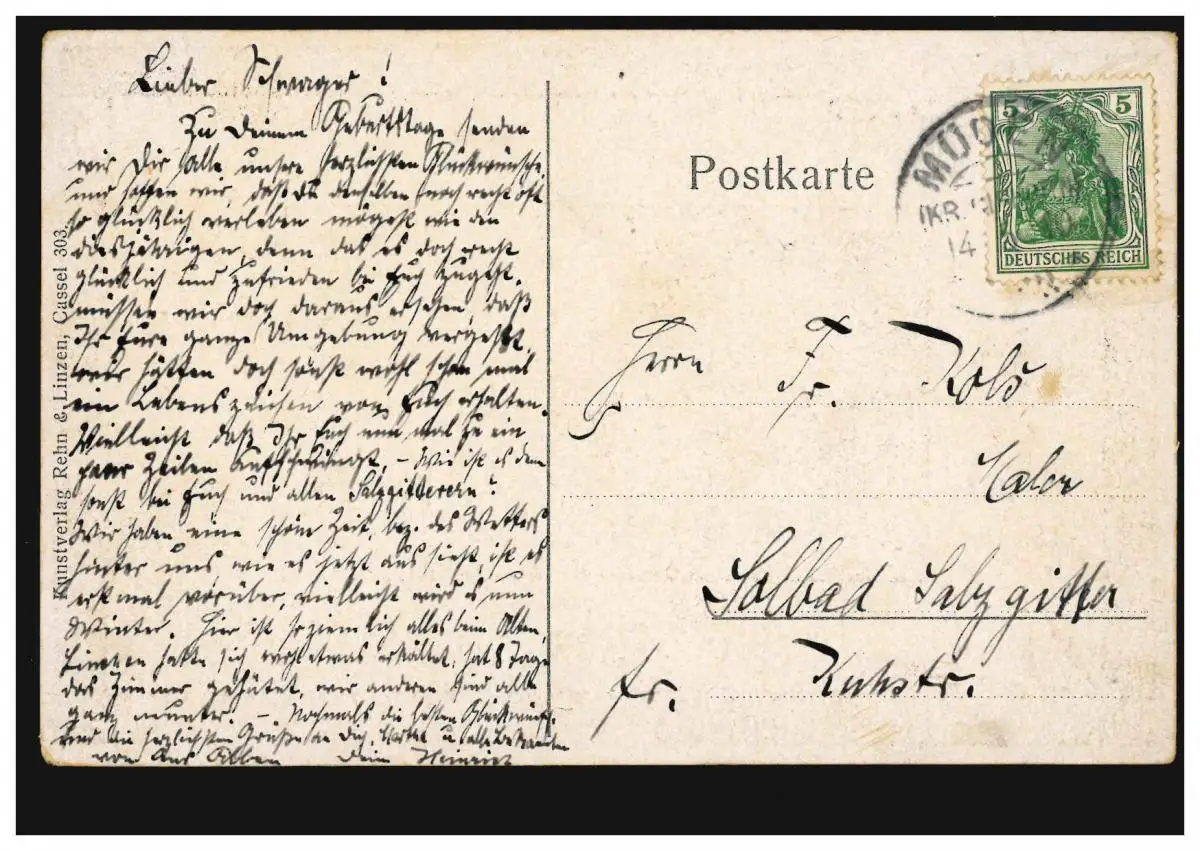 Lieber Schwager!
Zu Deinem Geburtstage senden
wir Dir alle unsere herzlichsten Glückwünsche
und hoffen wir, daß Du denselben noch recht oft
so glücklich verleben mögest wie den
diesjährigen, denn das es doch recht
glücklich und zufrieden bei Euch zugeht
müssen wir doch daraus ersehen, daß
Ihr Eure ganze Umgebung vergeßt,
wir hätten doch sonst wohl schon mal
ein Lebenszeichen von Euch erhalten.
Vielleicht daß Ihr Euch nun mal zu ein
paar Zeilen Aufschwingt. – Wie ist es denn
sonst bei Euch und allen Salzgitterern?
Wir haben eine schöne Zeit, bez. des Wetters
hinter uns wie es jetzt aussieht, ist es
erstmal vorüber, vielleicht wird es nun
Winter. Hier ist so ziemlich alles beim Alten,
hatte sich wohl etwas erkältet, hat 8 Tage
das Zimmer gehütet, wir anderen sind alle
ganz munter. – Nochmals die besten Glückwünsche
und die herzlichsten Grüße an Dich, u. alle Bekannten
von uns Allen Dein Heinrich
Kunstverlag Rehn & Linzen, Cassel 303.
Postkarte
5 5
DEUTSCHES REICH
MÜDEN
(KR.
14
Herrn Fr. Kols
Maler
Solbad Salzgitter
fr. Kuhstr.